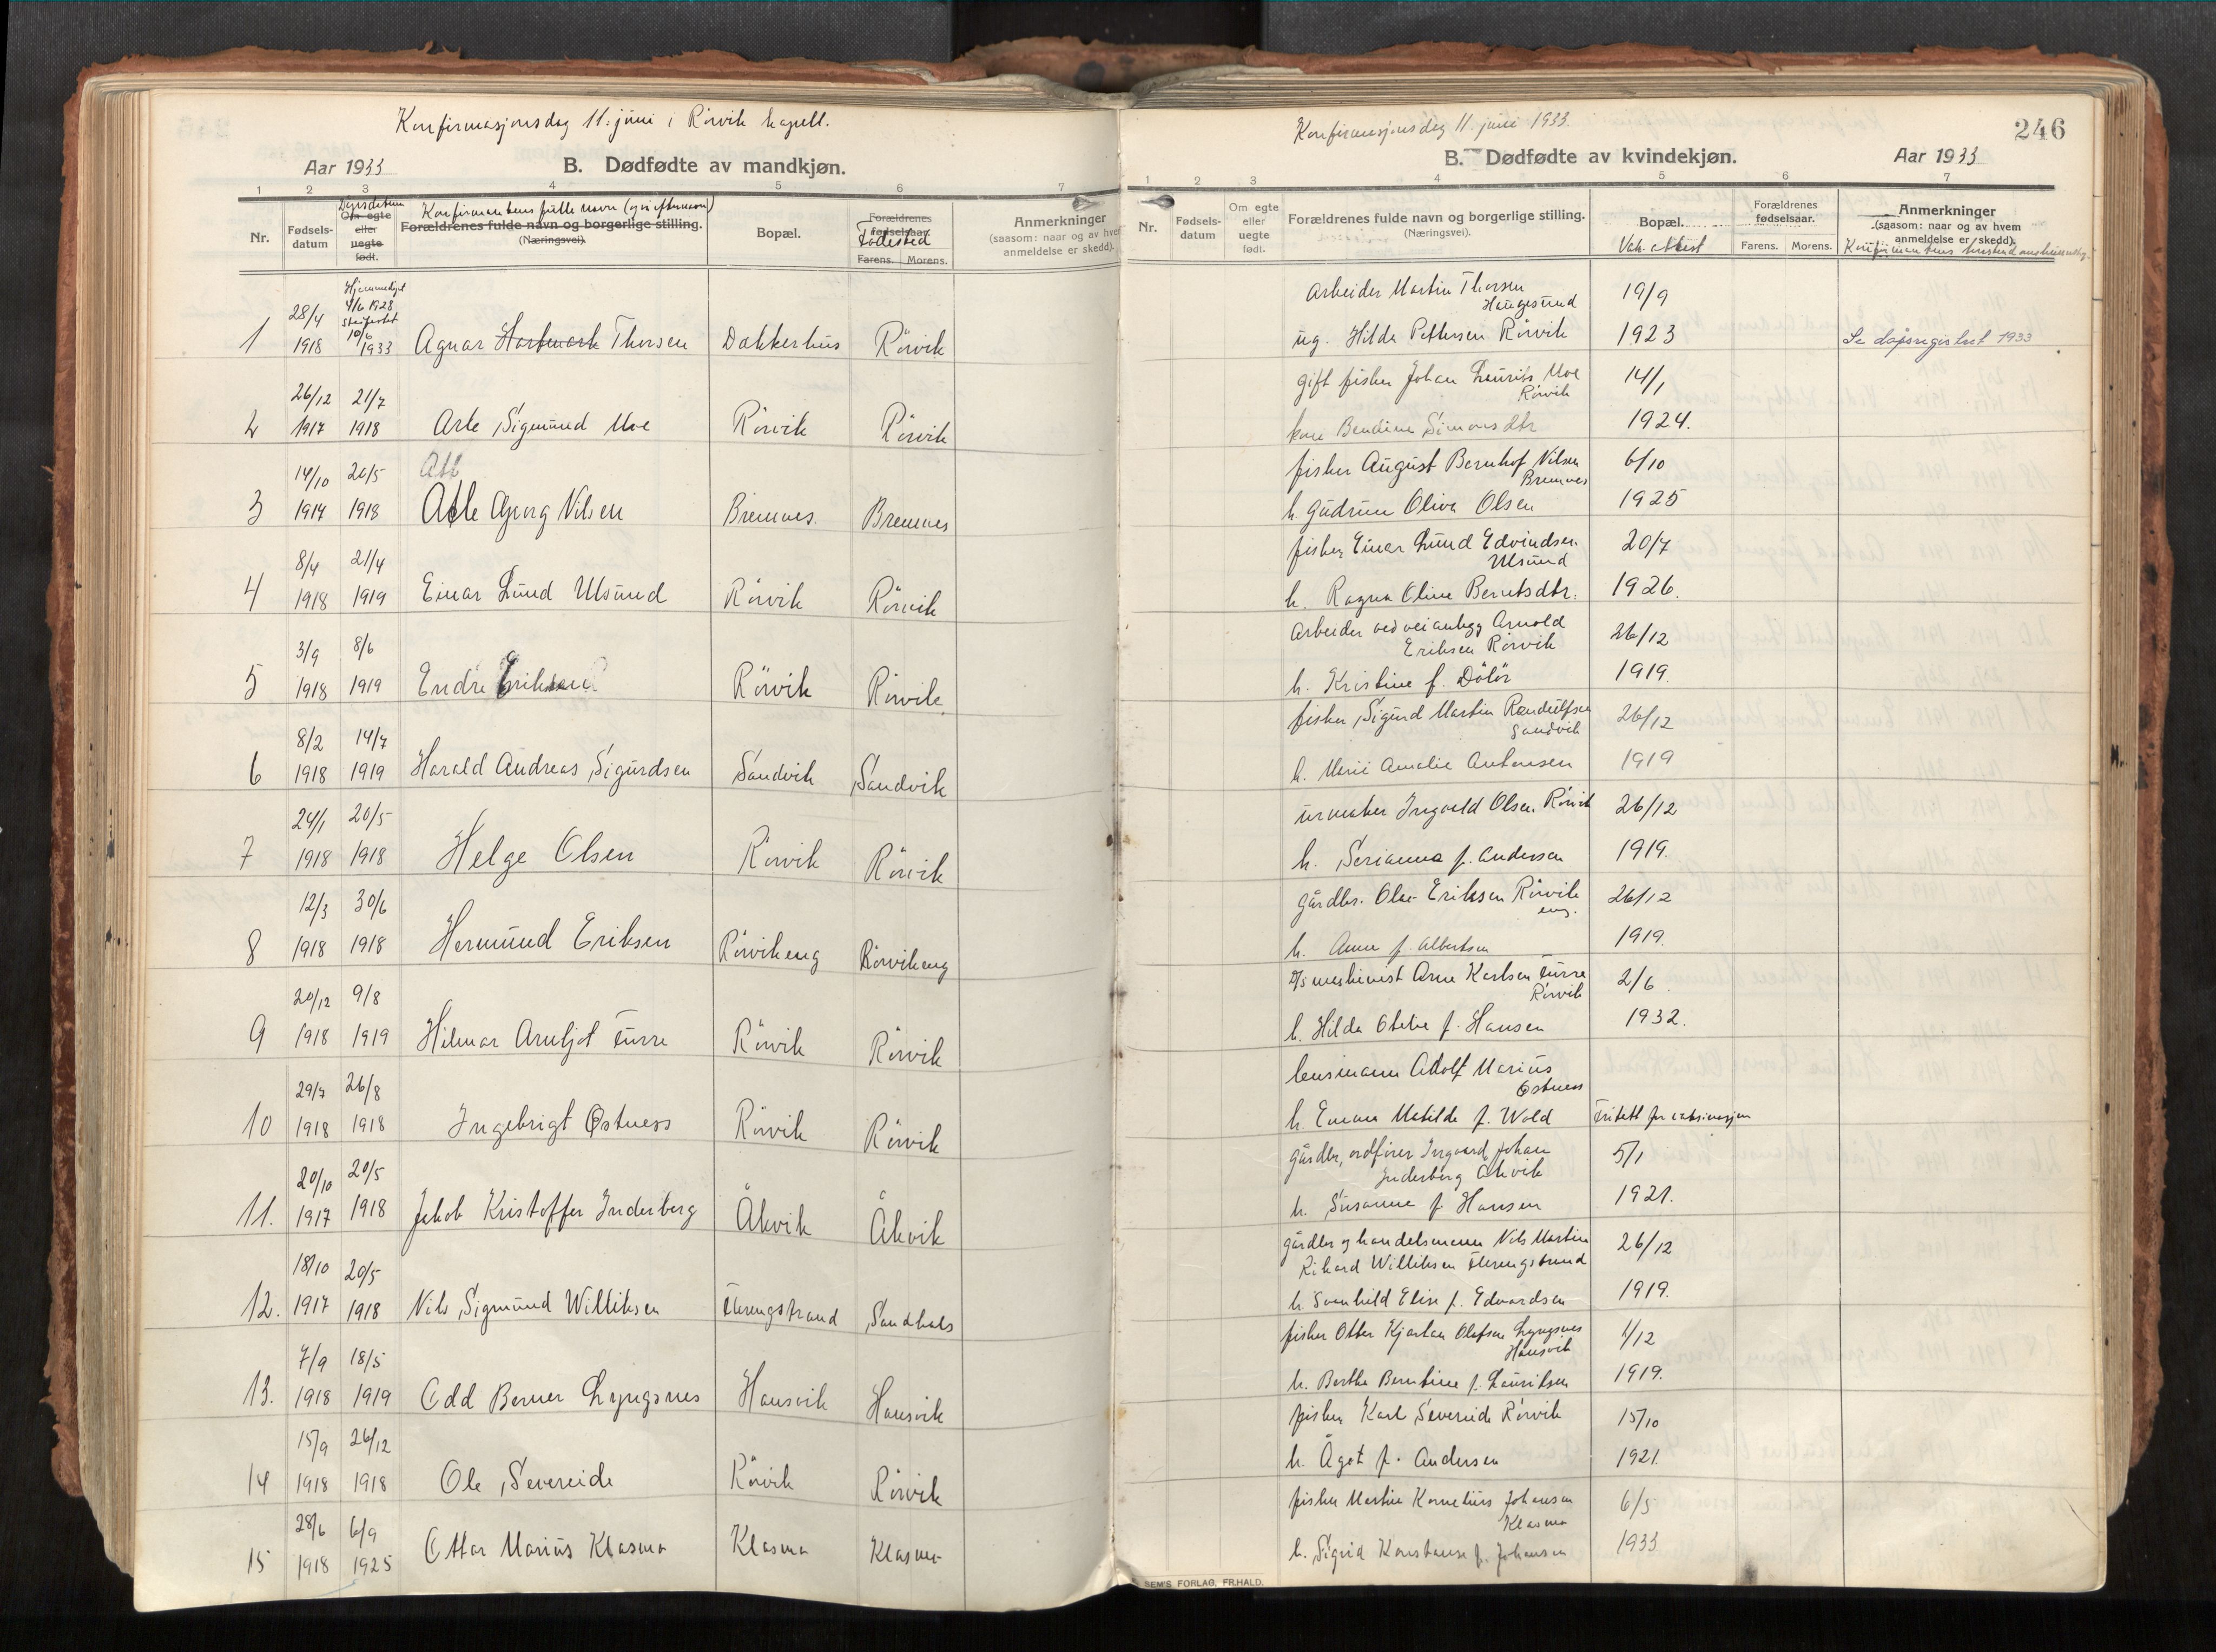 Konfirmasjonsdag 11. juni i Rörvik kapell.
Aar 1933
B. Dødfødte av mandkjøn.
1 2 3 4 5 6 7
Nr.
Fødsels-
datum
Dåpsdatum
Om egte
eller
uegte
født.
Konfirmantens fulle navn (og eftternavn)
Forældrenes fulde navn og borgerlige stilling.
(Næringsvei).
Bopæl.
Forældrenes
fødselsaar.
Födested
Farens. Morens.
Anmerkninger
(saasom: naar og av hvem
anmeldelse er skedd).
1 28/4 1918 Hjemmedøpt 4/6 1928 stadfestet 10/6 1933 Agnar Hartmark Thorsen Dakkerhus Rörvik
2 26/12 1917 21/7 1918 Arle Sigmund Moe Rörvik Rörvik
3 14/10 1917 20/5 1918 Atle Georg Nilsen Bremnes. Bremnes
4 8/4 1918 21/4 1919 Einar Lund Ulsund Rörvik Rörvik
5 3/9 1918 8/6 1919 Endre Eriksen Rörvik Rörvik
6 8/2 1918 14/7 1919 Harald Andreas Sigurdsen Sandvik Sandvik
7 24/1 1918 20/5 1918 Helge Olsen Rörvik Rörvik
8 12/3 1918 30/6 1918 Hermund Eriksen Rörvikeng Rörvikeng
9 20/12 1918 9/8 1919 Hilmar Arnljot Turre Rörvik Rörvik
10 29/7 1918 26/8 1918 Ingebrigt Østness Rörvik Rörvik
11. 20/10 1917 20/5 1918 Jakob Kristoffer Inderberg Åkvik Åkvik
12. 18/10 1917 20/5 1918 Nils Sigmund Williksen Flerengstrand Sandhals
13. 7/9 1918 18/5 1919 Odd Berner Lyngsnes Hansvik Hansvik
14 15/9 1918 26/12 1918 Ole Severeide Rörvik Rörvik
15 28/6 1918 6/9 1925 Ottar Marius Klasma Klasma Klasma
Konfirmasjonsdag 11. juni 1933.
246
B. Dødfødte av kvindekjøn.
Aar 1933
1 2 3 4 5 6 7
Nr.
Fødsels-
datum
Om egte
eller
uegte
født.
Forældrenes fulde navn og borgerlige stilling.
(Næringsvei).
Bopæl.
Vak. attest
Forældrenes
fødselsaar.
Farens. Morens.
Anmerkninger
(saasom: naar og av hvem
anmeldelse er skedd).
Konfirmantens
Arbeider Martin Thorsen
Haugesund 19/9
ug. Hilda Pettersen Rörvik 1923 Se dåpsregistret 1933
gift fisker Johan Laurits Moe
Rörvik 14/1
kone Bendine Simonsdtr 1924.
fisker August Bernhof Nilsen
Bremnes 6/10
h. Gudrun Oliva Olsen 1925
fisker Einar Lund Edvindsen
Ulsund 20/7
h. Ragna Oline Berntsdtr. 1926.
Arbeider ved veianlegg Arnold
Eriksen Rörvik 26/12
h. Kristine f. Dölör 1919.
fisker Sigurd Martin Randulfsen
Sandvik 26/12
h. Marie Amalie Antonsen 1919
urmaker Ingvald Olsen Rörvik 26/12
h. Serianna f. Andersen 1919.
gårdbr. Olav Eriksen Rörvik
eng. 26/12
h. Anna f. Albertsen 1919.
D/s maskinist Arne Karlsen Turre
Rörvik 2/6.
h. Hilda Otelie f. Hansen 1932.
lensmann Adolf Marius
Østness
h. Emma Matilde f. Wold Fritatt for vaksinasjon
gårdbr, ordfører Ingvard Johan
Inderberg Åkvik 5/1
h. Susanne f. Hansen 1921.
gårdbr og handelsmann Nils Martin
Rikard Williksen Flerengstrand 26/12
h. Svanhild Elise f. Edvardsen 1919.
fisker Otter Kjartan Olafsen Lyngsnes
Hansvik 1/12
h. Berthe Berntine f. Lauritsen 1919.
fisker Karl Severeide Rörvik 15/10
h. Ågot f. Andersen 1921.
fisker Martin Kornelius Johansen
Klasma 6/5
h. Sigrid Konstanse f. Johansen 1933
SEM'S FORLAG, FR.HALD.